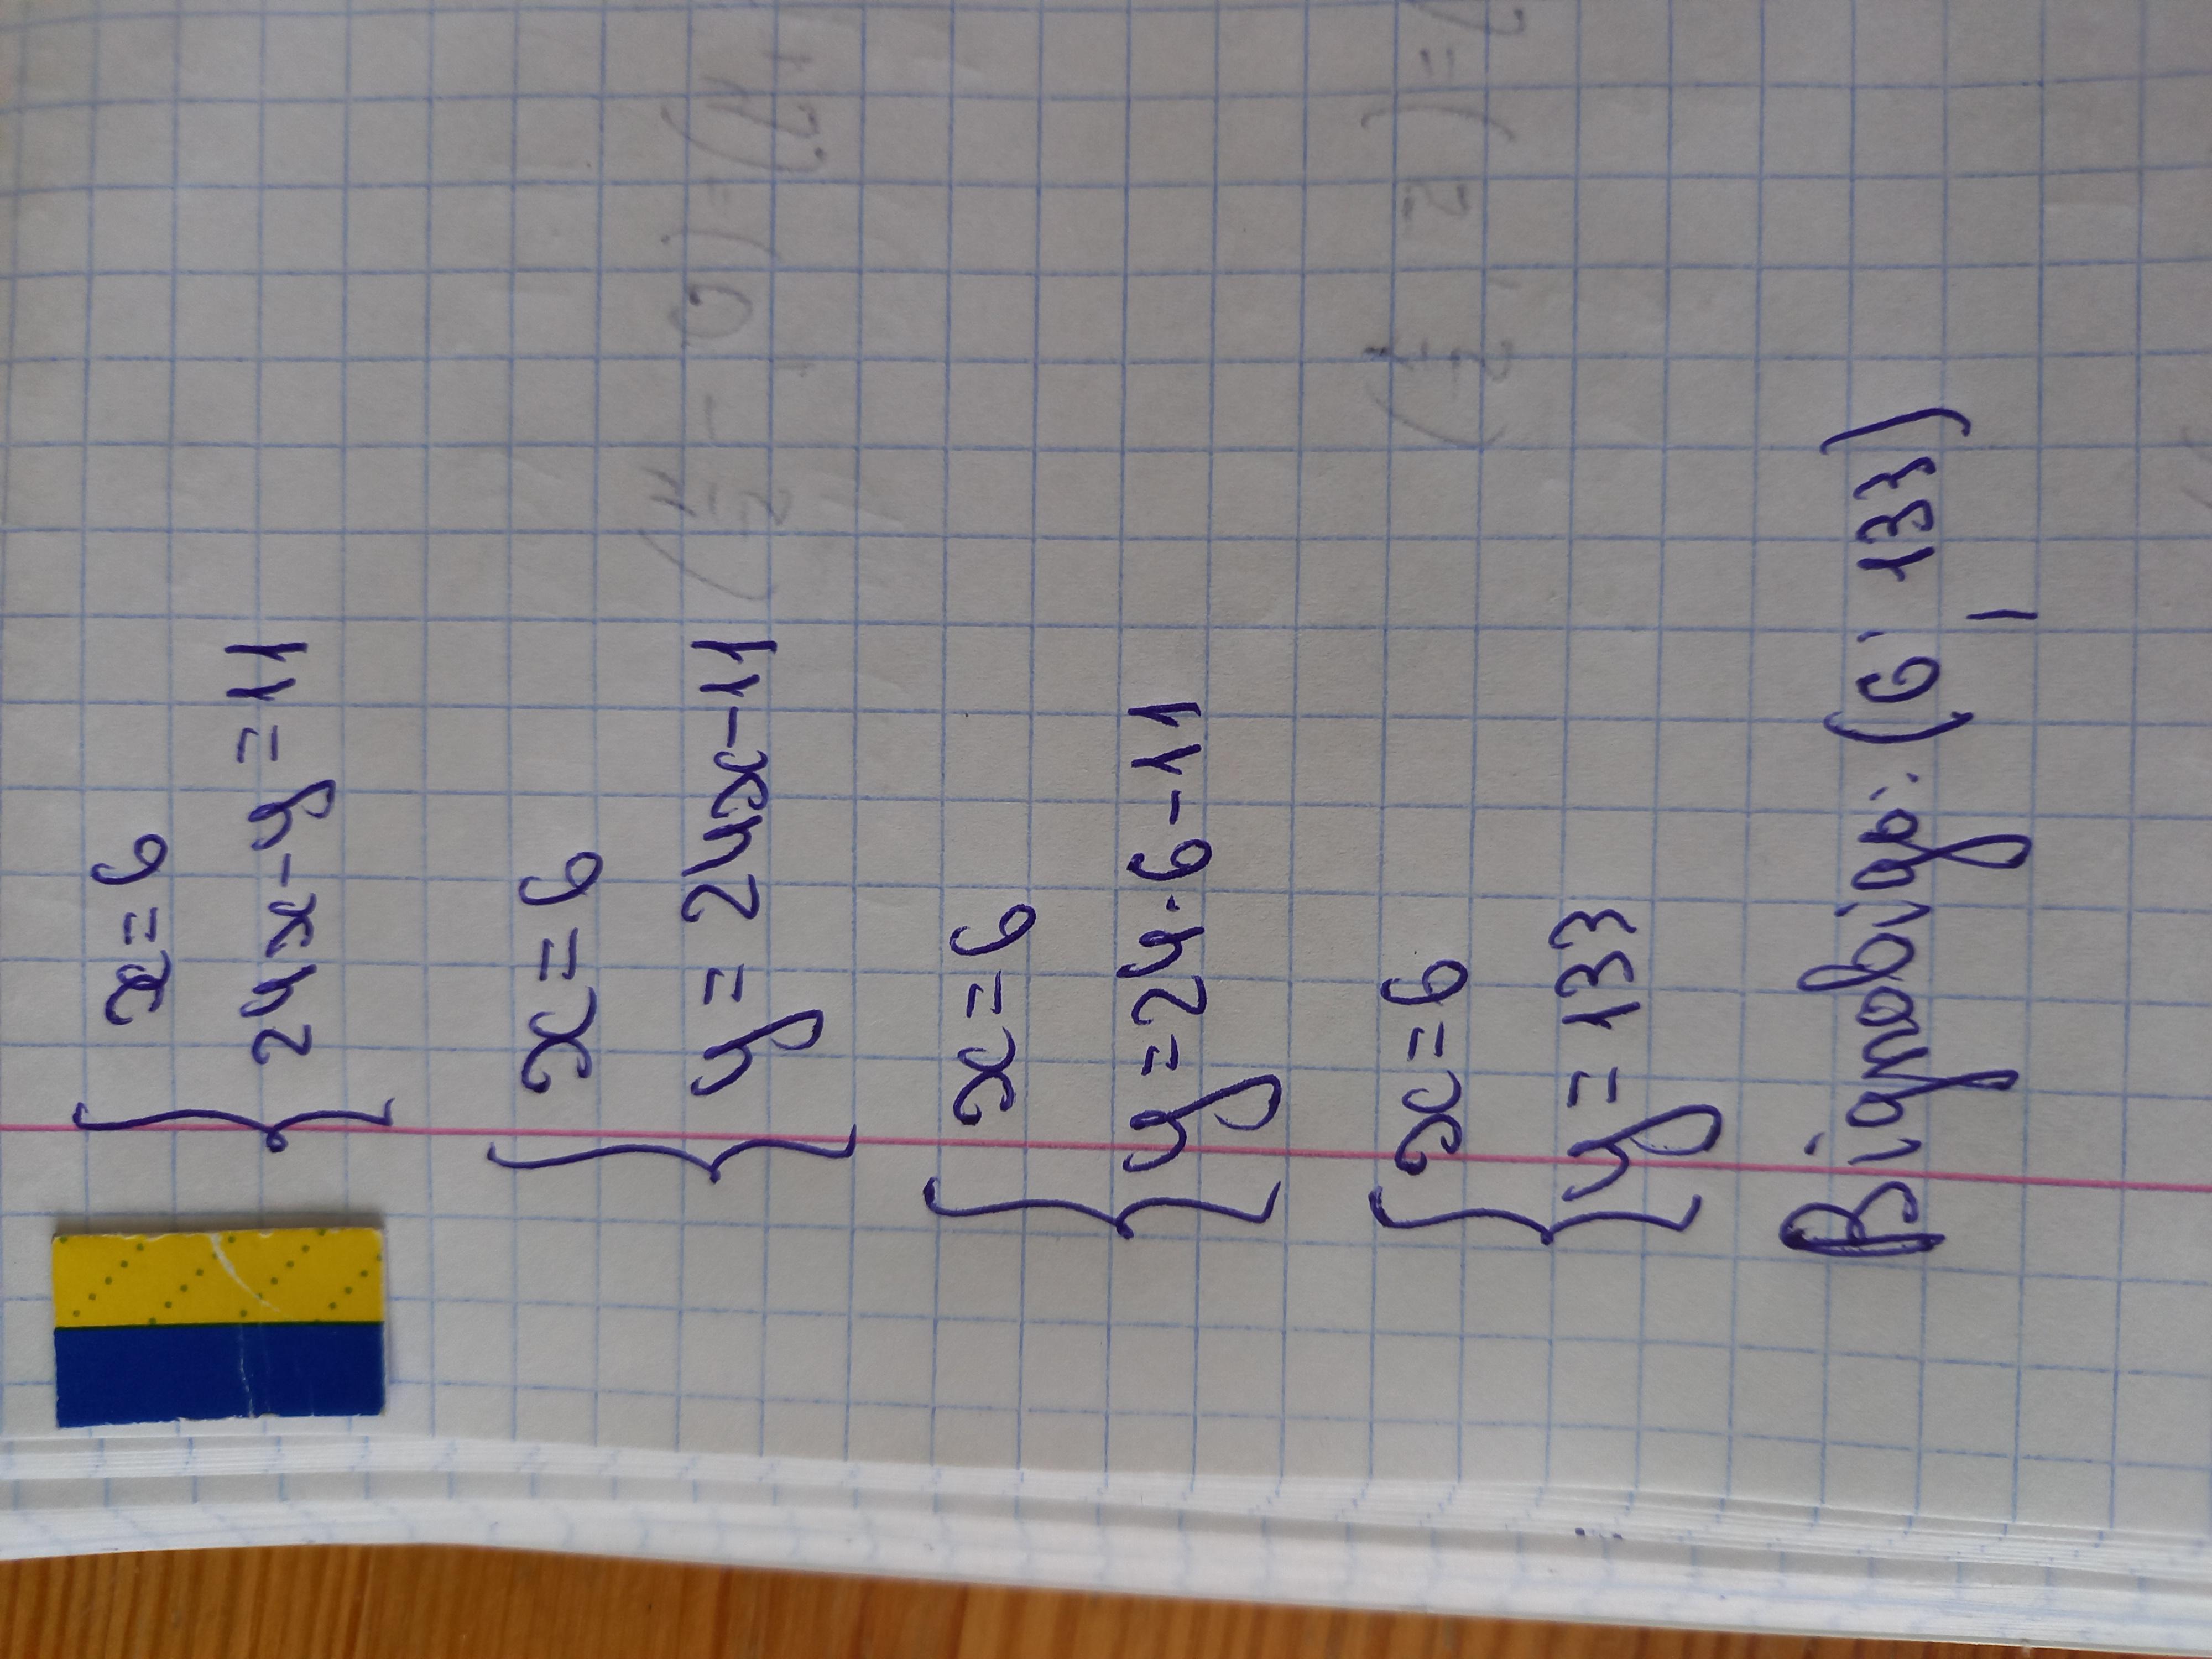 x=6
24x-y=11
x=6
y=24x-11
x=6
y=24·6-11
x=6
y=133
Відповідь: (6; 133)